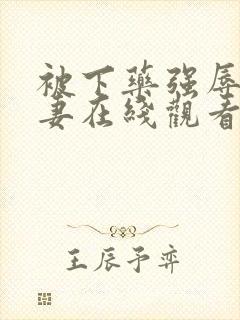 被下藥強辱
妻在綫觀看
王辰予弈